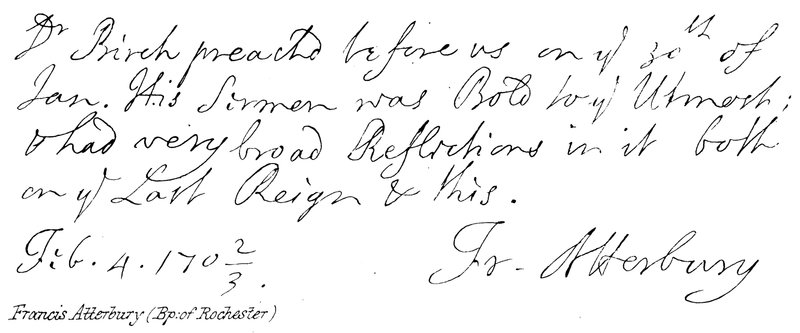 Dr Birch preachd before us on ye 30th of
Jan. His Sermon was Bold to ye Utmost;
& had very broad Reflections in it both
on ye Last Reign & this.
Feb. 4. 170 2/3.
Fr. Atterbury
Francis Atterbury (Bp: of Rochester)